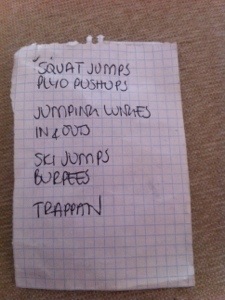 SQUAT JUMPS
PLYO PUSHUPS
JUMPING LUNGES
IN & OUTS
SKI JUMPS
BURPEES
TRAPPAN